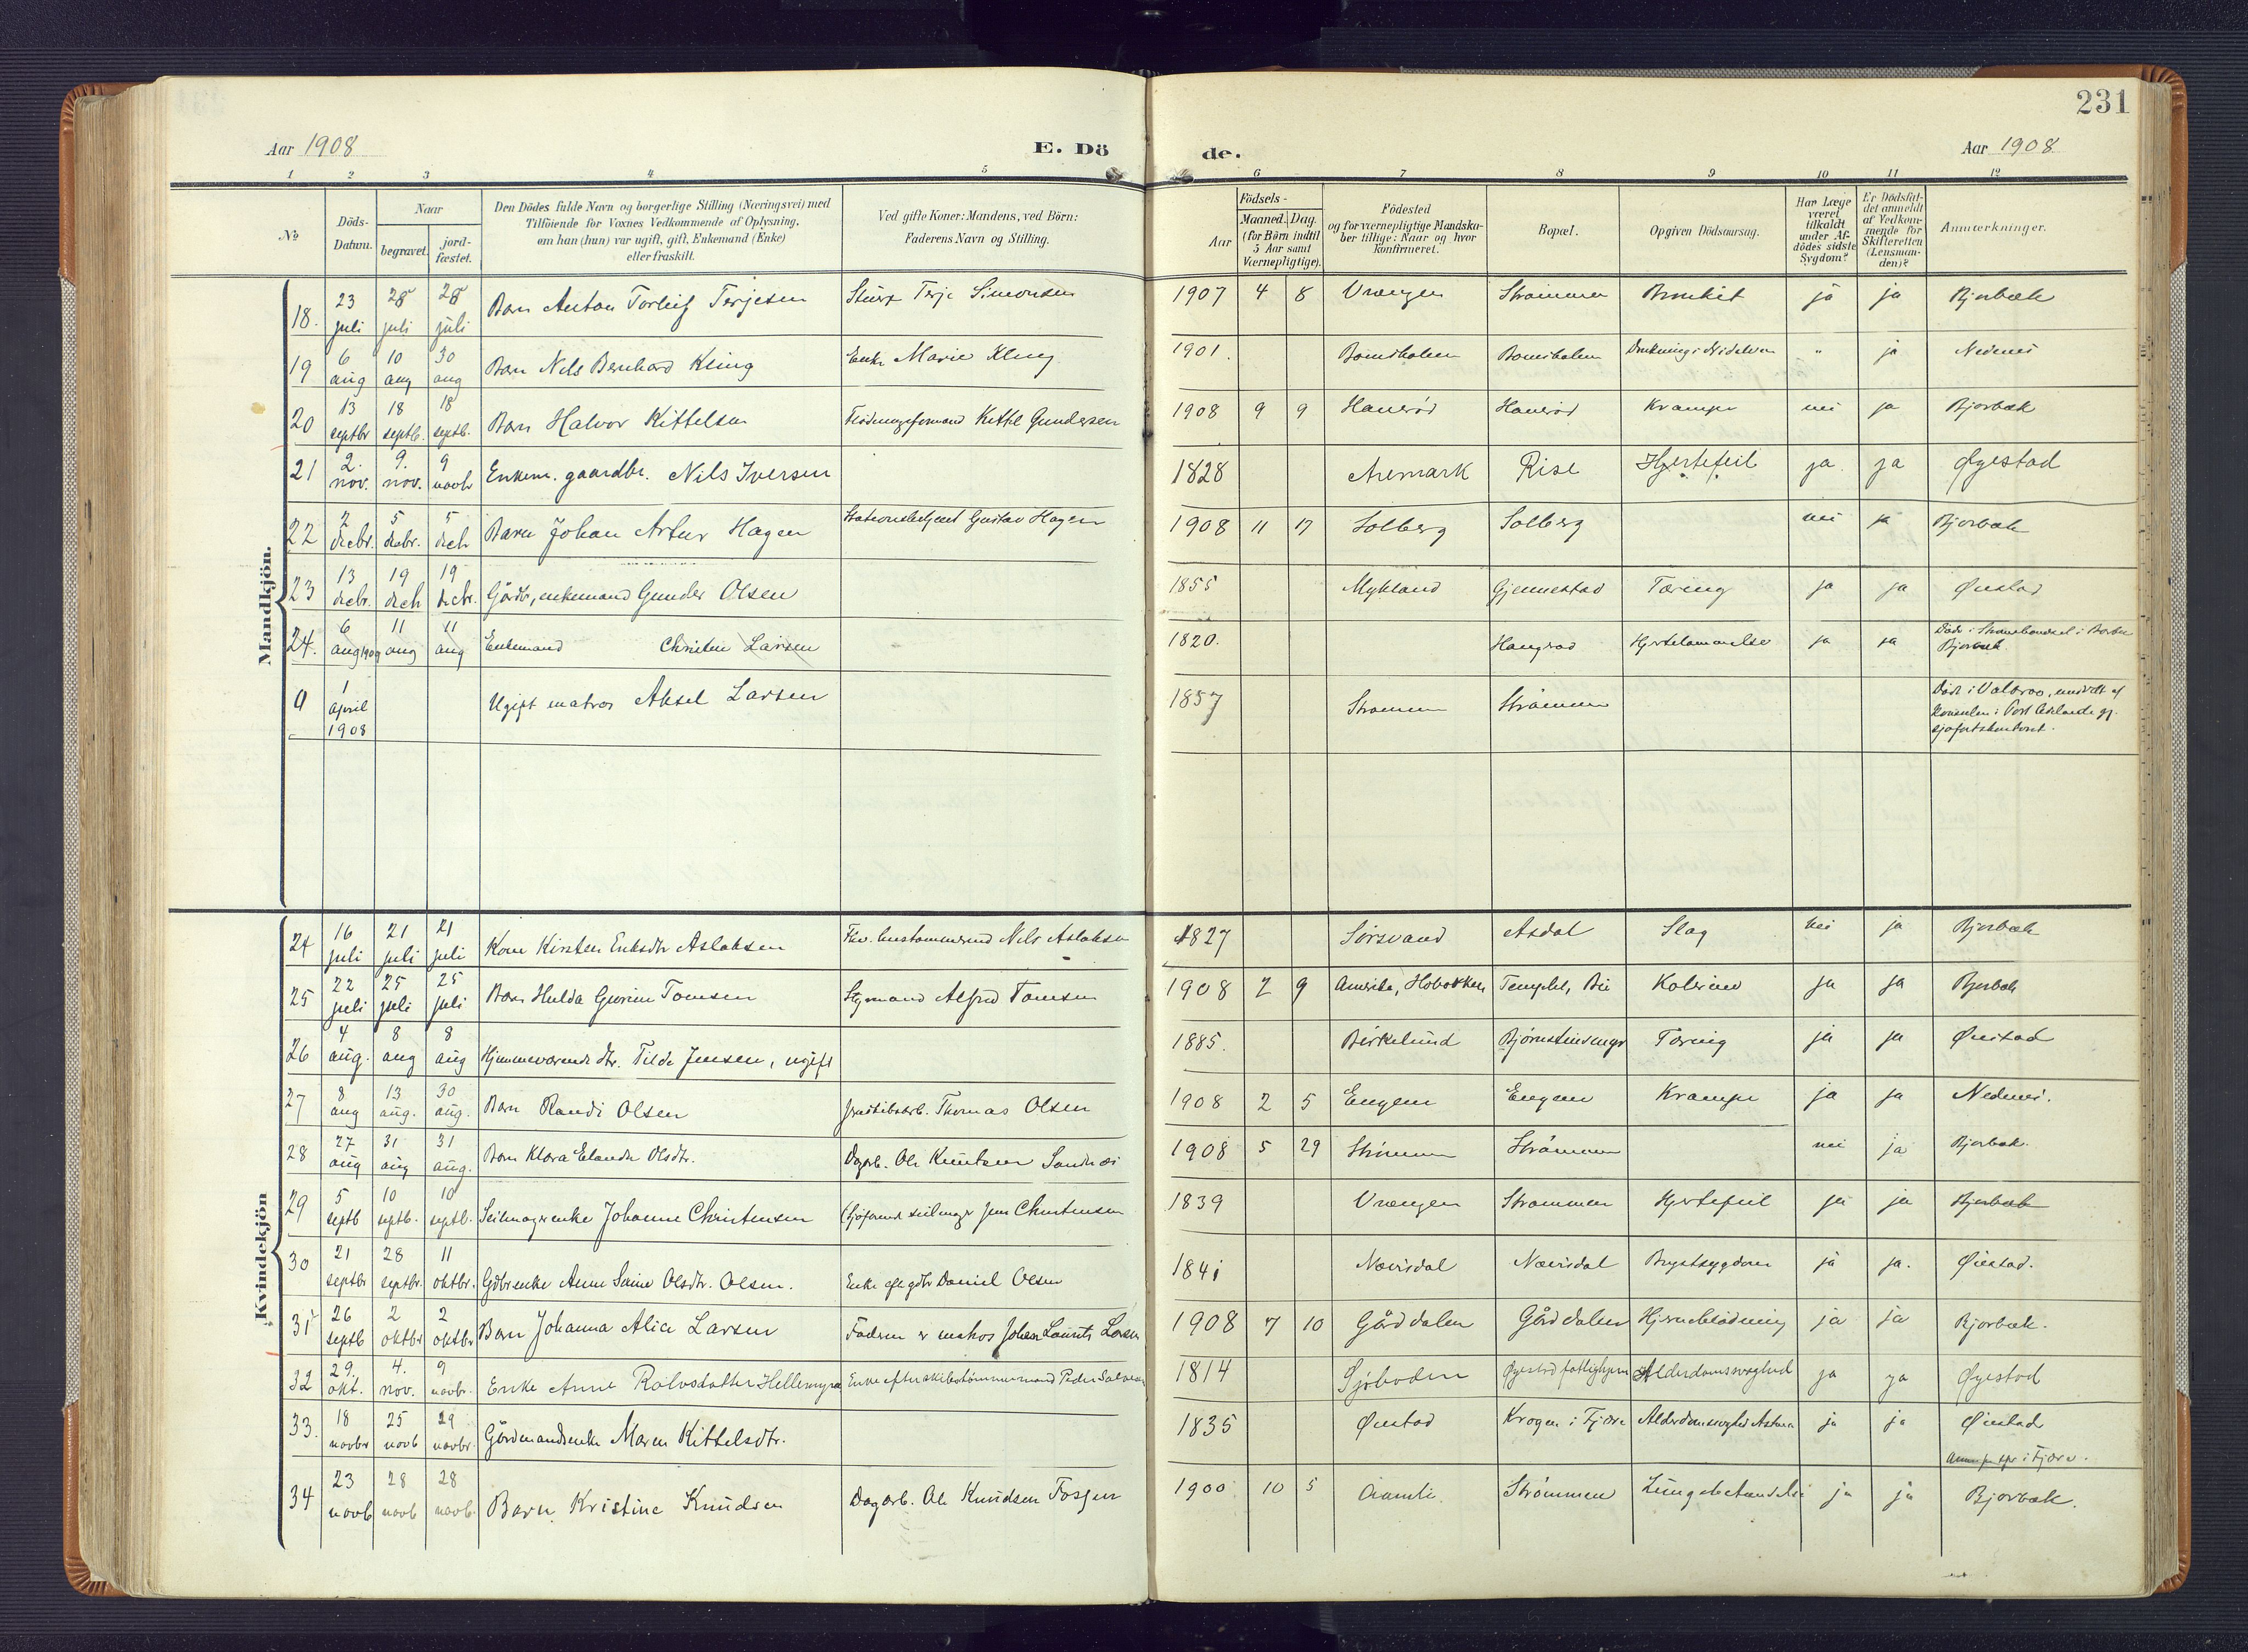 231
Aar 1908
E. Dö
de.
Aar 1908
1 2 3 4 5 6 7 8 9 10 11 12
No
Döds-Datum.
Naar
begravet.
jord-fæstet.
Den Dödes fulde Navn og borgerlige Stilling (Næringsvei) med
Tilföiende for Voxnes Vedkommende af Oplysning.
om han (hun) var ugift, gift, Enkemand (Enke)
eller fraskilt.
Ved gifte Koner: Mandens, ved Börn:
Faderens Navn og Stilling.
Födsels-
Aar
Maaned. Dag.
(for Börn indtil
5 Aar samt
Værnepligtige).
Födested
og for værnepligtige Mandska-
ber tillige: Naar og hvor
konfirmeret.
Bopæl.
Opgiven Dödsaarsag.
Har Læge
været
tilkaldt
under Af-
dödes sidste
Sygdom?
Er Dödsfal-
det anmeldt
af Vedkom-
mende for
Skifteretten
(Lensman-
den)?
Anmærkninger.
Mandkjön.
18. 23 juli 28 juli 28 juli Barn Anton Torleif Terjesen Terje Simonsen 1907 4 8 Vrængen Strømmen Bronkit ja ja Bjorbæk
19 6 aug 10 aug 30 aug Barn Nils Bernhard Kling Enke Marie Kling 1901. Bomsholmen Bomsholmen Drukning i Nidelven " ja Nedenes
20 13 septbr 18 septb. 18 septb. Barn Halvor Kittelsen Flødningsformand Kittil Gundersen 1908 9 9 Hanerød Hanerød Krampe nei ja Bjorbæk
21 2. nov. 9. nov. 9 novbr Enkem. gaardbr. Nils Iversen 1828 Aremark Rise Hjertefeil ja ja Øyestad
22 2 decbr. 5 decbr. 5 decb Barn Johan Artur Hagen Stationsbetjent Gustav Hagen 1908 11 17 Solberg Solberg nei ja Bjorbæk
23 13 decbr. 19 decb 19 decbr. Gårdbr, enkemand Gunder Olsen 1855 Mykland Gjennestad Tæring ja ja Øiestad
24. 6 aug 1909 11 aug 11 aug Enkemand Christen Larsen 1820. Haugrød Hjertelammelse ja ja Bjorbæk
a 1 april 1908 Ugift matros Aksel Larsen 1857 Strømmen Strømmen Død i Valaroo, meldt af
Konsulen i Port Adelaide gj.
sjøfartskontoret.
Kvindekjön
24 16 juli 21 juli 21 juli Kone Kirsten Eriksdtr Aslaksen Nils Aslaksen 1827 Sørsvand Asdal Slag nei ja Bjorbæk
25 22 juli 25 juli 25 juli Barn Hulda Gurine Tomsen Styrmand Alfred Tomsen 1908 2 9 Amerika, Hobokken Templet, Bie Kolerine ja ja Bjorbæk
26 4 aug. 8 aug 8 aug Hjemmeværende dtr. Tilde Jensen, ugift 1885. Birkelund Tæring ja ja Øiestad
27 8 aug 13 aug. 30 aug. Barn Randi Olsen Thomas Olsen 1908 2 5 Engene Engene Krampe ja ja Nedenes.
28 27 aug 31 aug 31 aug. Barn Klara Elande Olsdtr. Dagarb. Ole Knutsen Sandnes 1908 5 29 Strømmen Strømmen nei ja Bjorbæk.
29 5 septb 10 septb. 10 septb. Seilmagerenke Johanne Christensen Jens Christensen 1839 Vrængen Strømmen Hjertefeil ja ja Bjorbæk
30 21 septbr 28 septbr. 11 oktbr. Gdbrenke Anne Serine Olsdtr. Olsen. Enke eft gdbr Daniel Olsen 1841 Nævisdal Nævisdal Brystsygdom ja ja. Øiestad.
31 26 septb 2 oktbr 2 oktbr Barn Johanna Alice Larsen Faderen er matros Johan Laurits Larsen 1908 7 10 Gårddalen Gårddalen Hjerneblødning ja ja Bjorbæk.
32 29. okt. 4. nov. 9 novbr. Enke Anne Rolvsdatter Hellemyra Enke efter skibstømmermand Peder Salvesen 1814 Sjøboden Øyestad fattighjem Alderdomssvaghed ja ja Øyestad
33. 18 novbr 25 novb 29 novbr. Gårdmandsenke Maren Kittelsdtr. 1835 Øiestad Krogen i Fjære Alderdomssvaghed Astma ja ja Øiestad
i Fjære.
34 23 novb 28 novb 28 novb. Barn Kristine Knudsen Dagarb. Ole Knudsen Fosjen 1900 10 5 Aamli Strømmen Lungebetændelse ja ja Bjorbæk.